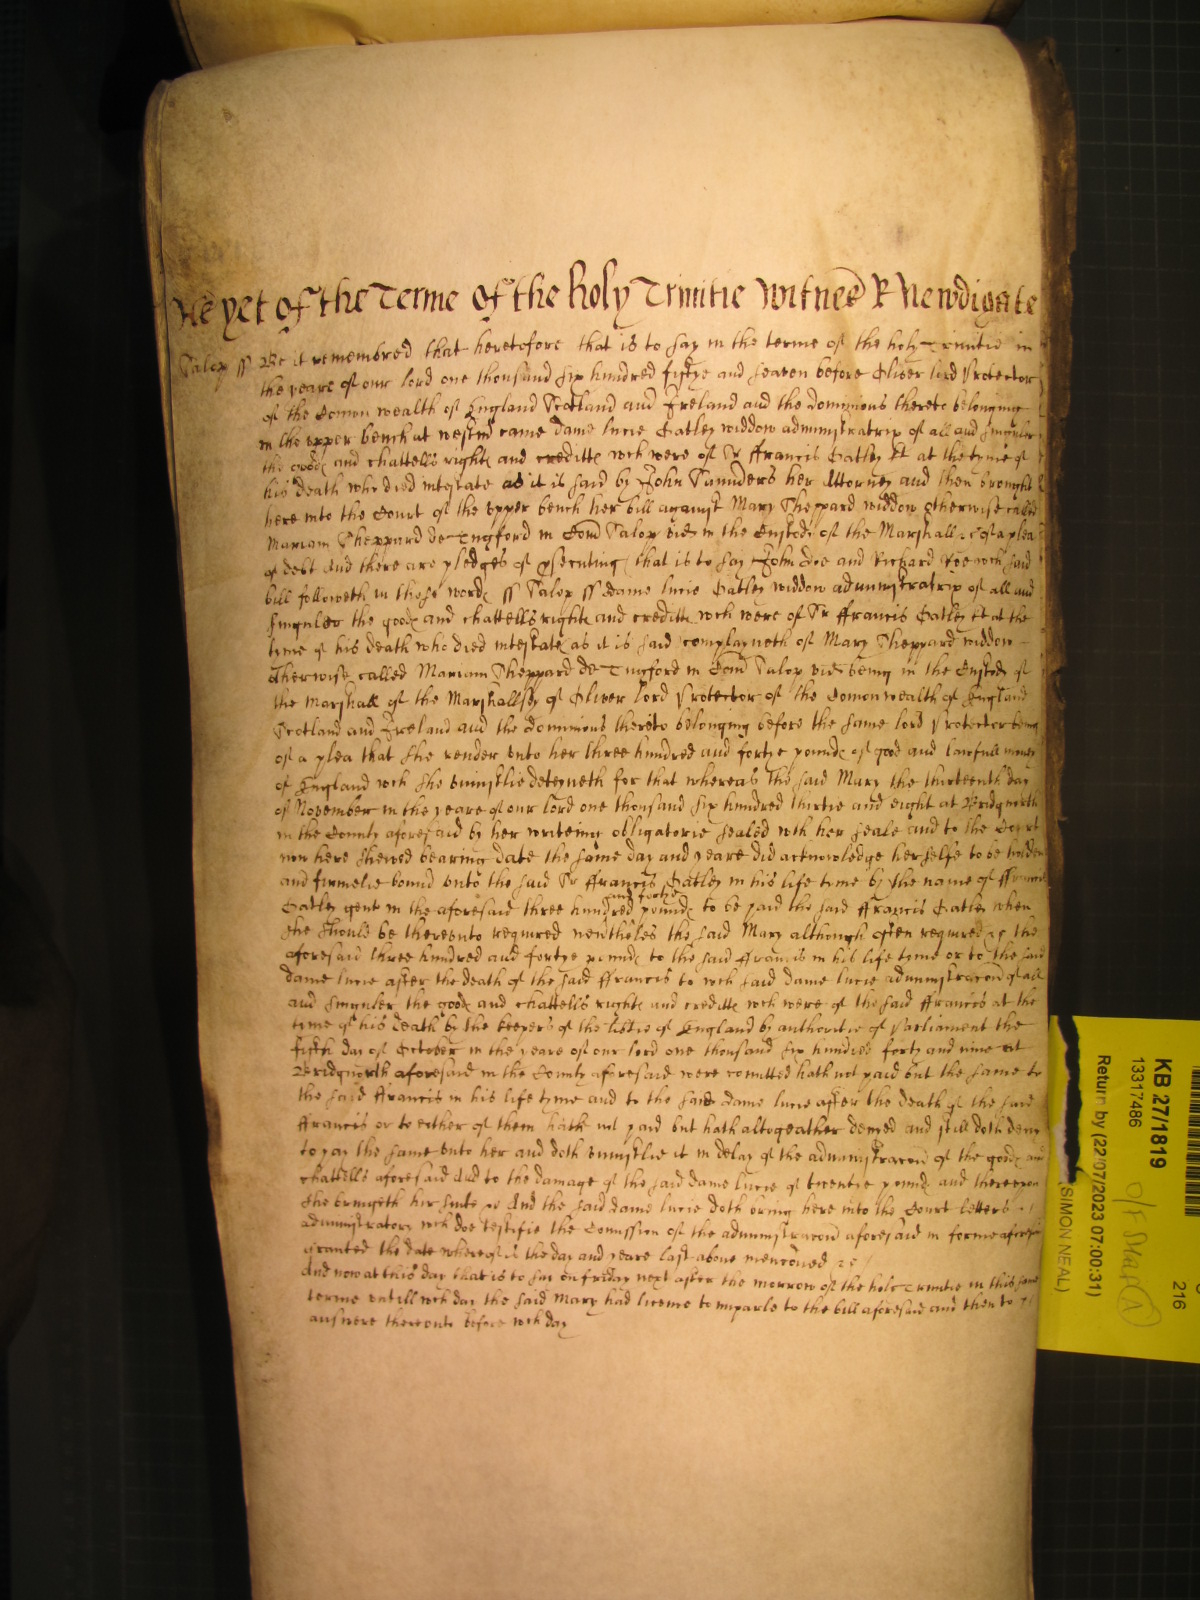 As yet of the Terme of the holy Trinitie Witnes R Newdigate
Salop ss Be it remembred that heretofore that is to say in the terme of the holy Trinitie in
the yeare of our lord one thousand six hundred fiftye and seaven before Oliver lord Protector
of the Comon wealth of England Scotland and Ireland and the dominions thereto belonging
in the upper bench at westm came dame lucie Oatley widdow administratrix of all and singuler
the goods and chattells rights and creditts wch were of Sr ffrancis Oatley kt at the tyme of
his death who died intestate as it is said by John Saunders her Attorney and then brought
here into the Court of the upper bench her bill against Mary Sheppard widdow otherwise called
Mariam Sheppard de Tugford in Com Salop vid in the Custody of the Marshall &c of a plea
of debt And there are pledges of psecuting that is to say John Doe and Richard Roe wch said
bill followeth in these words ss Salop ss Dame lucie Oatley widdow administratrix of all and
singuler the goods and chattells rights and creditts wch were of Sr ffrancis Oatley kt at the
time of his death who died intestate as it is said complayneth of Mary Sheppard widdow
otherwise called Mariam Sheppard de Tugford in Com Salop vid being in the Custody of
the Marshall of the Marshallsey of Oliver lord Protector of the Comon wealth of England
Scotland and Ireland and the dominions thereto belonging before the same lord Protector being
of a plea that she render unto her three hundred and fortie pounds of good and lawfull money
of England wch she uniustlie deteyneth for that whereas the said Mary the thirteenth day
of November in the yeare of our lord one thousand six hundred thirtie and eight at Bridgnorth
in the County aforesaid by her writeing obligatorie sealed wth her seale and to the Court
now here shewed bearing date the same day and yeare did acknowledge herselfe to be holden
and firmelie bound unto the said Sr ffrancis Oatley in his life time by the name of ffrancis
and fortie
Oatley gent in the aforesaid three hundred pounds to be paid the said ffrancis Oatley when
she should be thereunto required nevtheles the said Mary although often required &c the
aforesaid three hundred and fortye pounds to the said ffrancis in his life tyme or to the said
dame lucie after the death of the said ffrancis to wch said dame lucie administracon of all
and singuler the goods and chattells rights and creditts wch were of the said ffrancis at the
time of his death by the keepers of the libtie of England by authoritie of Parliament the
fifth day of October in the yeare of our lord one thousand six hundred forty and nine att
Bridgnorth aforesaid in the County aforesaid were comitted hath not paid but the same to
the said ffrancis in his life tyme and to the said dame lucie after the death of the said
ffrancis or to either of them hath not paid but hath altogeather denyed and still doth deny
to pay the same unto her and doth uniustlie it in delay of the administracon of the goods and
chattells aforesaid And to the damage of the said dame lucie of twentie pounds and thereupon
she bringeth her suite &c And the said dame lucie doth bring here into the Court letters
administratory wch doe testifie the Comission of the administracon aforesaid in forme aforesaid
granted the date whereof is the day and yeare last above mencioned &c
And now at this day that is to say on friday next after the morrow of the holy Trinitie in this same
terme untill wch day the said Mary had licence to imparle to the bill aforesaid and then to
answere thereunto before wch day
KB 27/1819
13317486
Return by (22/07/2023 07:00:31)
(SIMON NEAL)
216